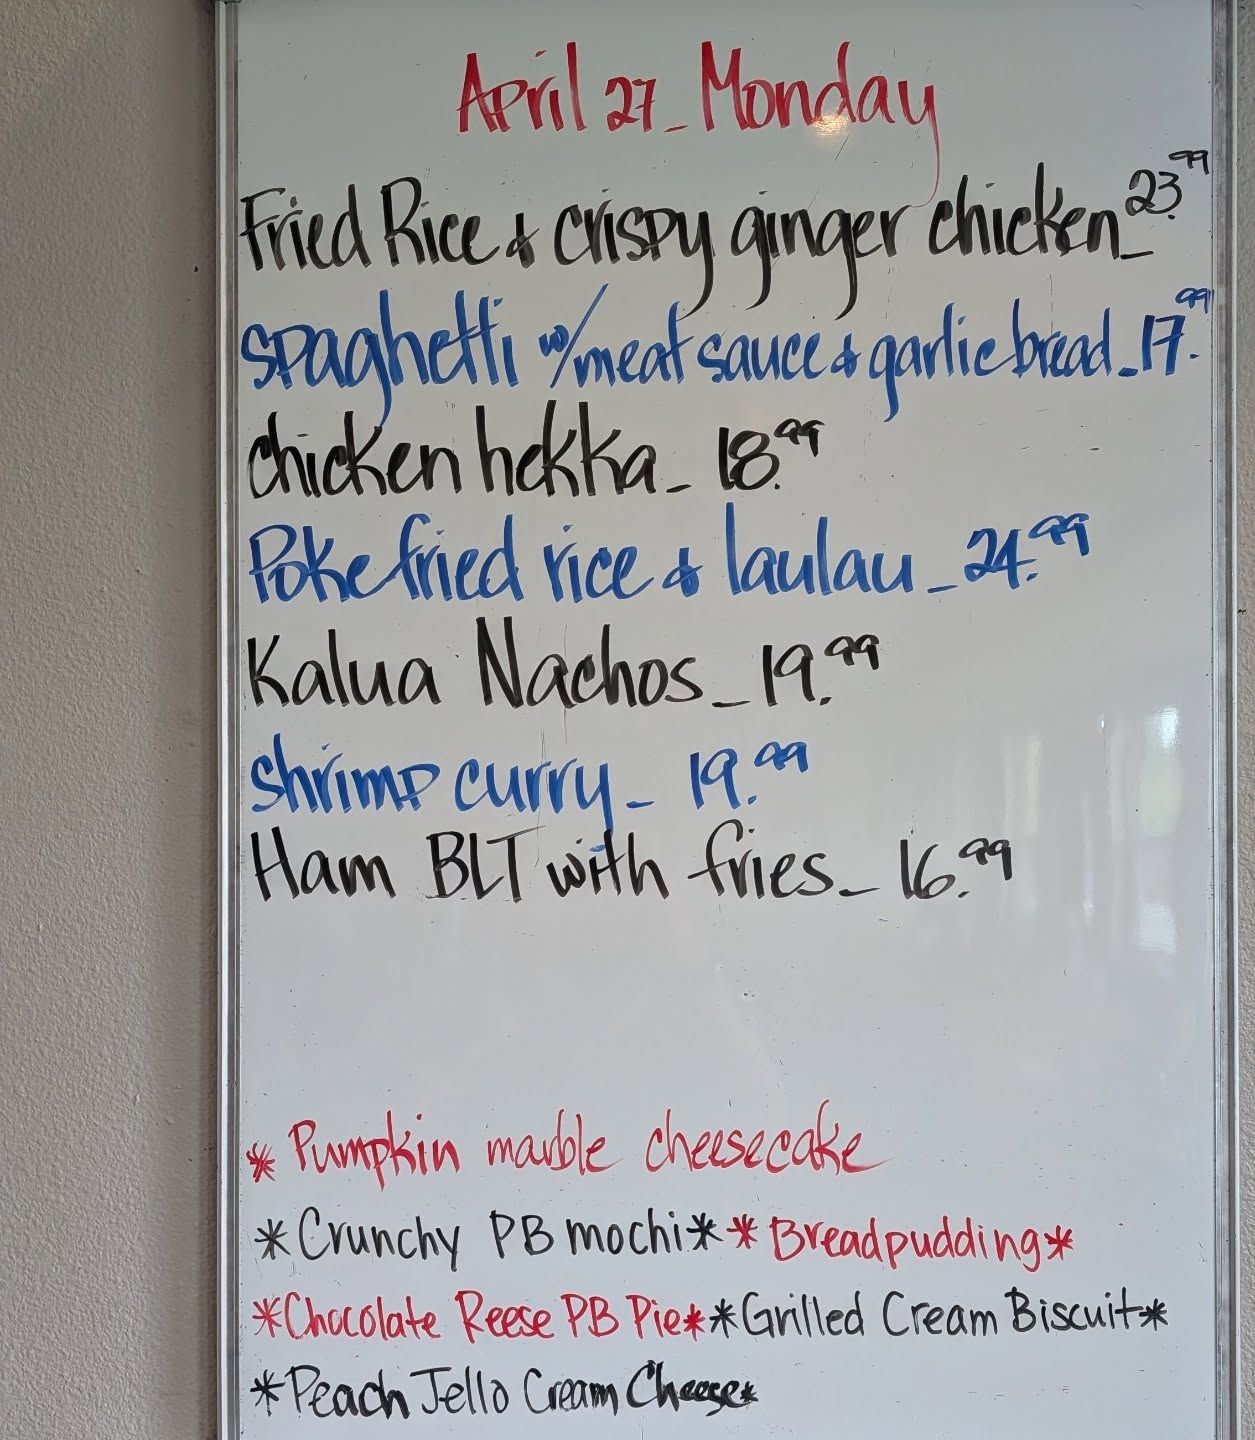 April 27_Monday
Fried Rice & crispy ginger chicken_23.99
spaghetti w/meat sauce & garlic bread_17.99
chicken hekka_18.99
Poke fried rice & laulau_24.99
Kalua Nachos_19.99
shrimp curry_19.99
Ham BLT with fries_16.99
* Pumpkin marble cheesecake
*Crunchy PB mochi* *Breadpudding*
*Chocolate Reese PB Pie* *Grilled Cream Biscuit*
*Peach Jello Cream Cheese*